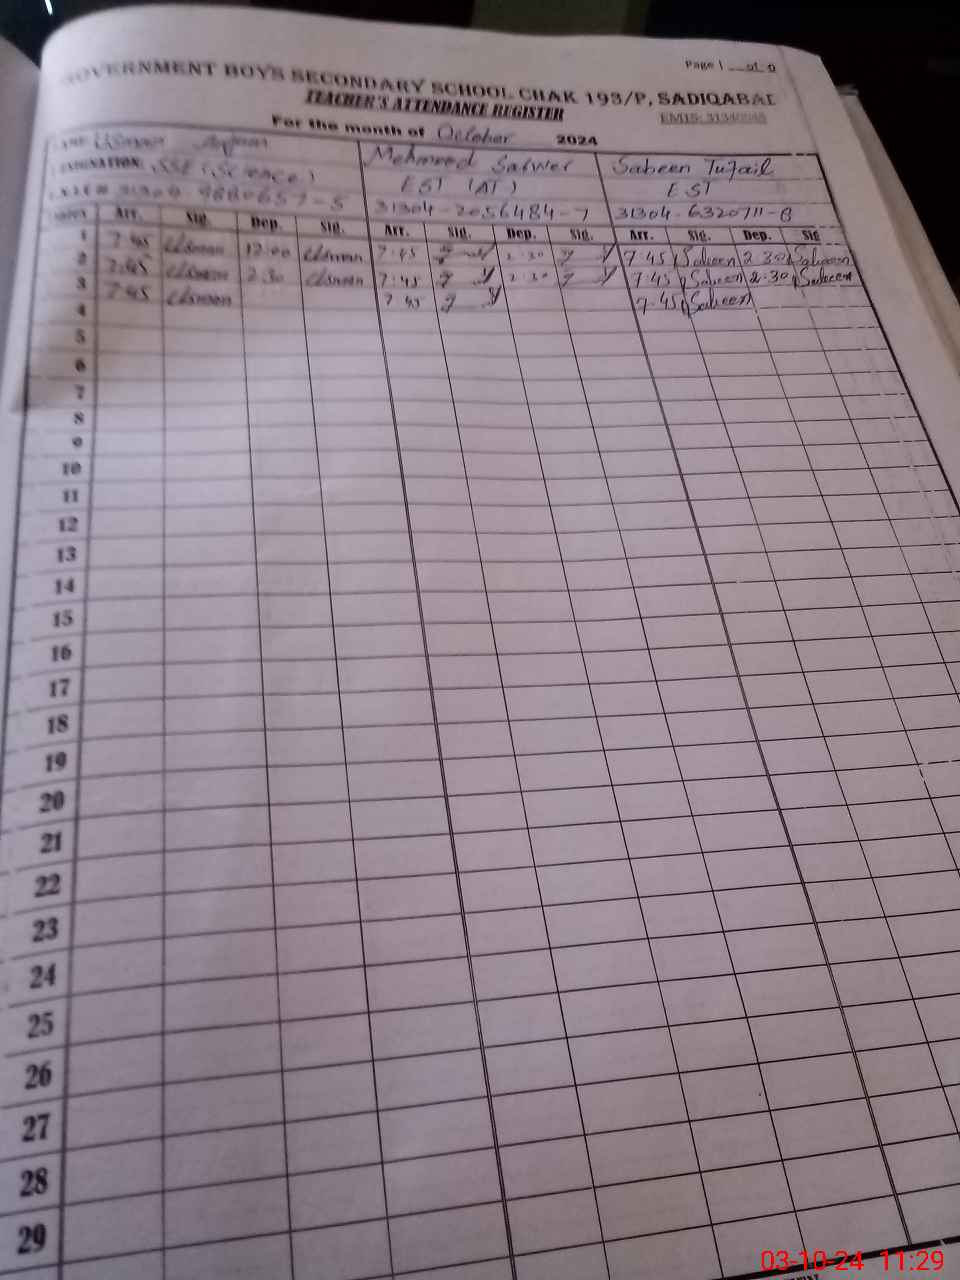 Page 1 of 0
GOVERNMENT BOYS SECONDARY SCHOOL CHAK 193/P, SADIQABAD
TEACHER'S ATTENDANCE REGISTER
For the month of October 2024
Usman Mehmood Sarwer Sabeen Tufail
DESIGNATION: SSE (Science) EST (AT) EST
31304-2056484-7 31304-6320711-8
Arr. Sig. Dep. Sig. Arr. Sig. Dep. Sig. Arr. Sig. Dep. Sig
1 7.45 Usman 12.00 Usman 7.45 2.30 7.45 Sabeen 2.30 Sabeen
2 7.45 Usman 2.30 Usman 7.45 2.30 7.45 Sabeen 2.30 Sabeen
3 7.45 Usman 7.45 7.45 Sabeen
4
5
6
7
8
9
10
11
12
13
14
15
16
17
18
19
20
21
22
23
24
25
26
27
28
29
03-10-24 11:29